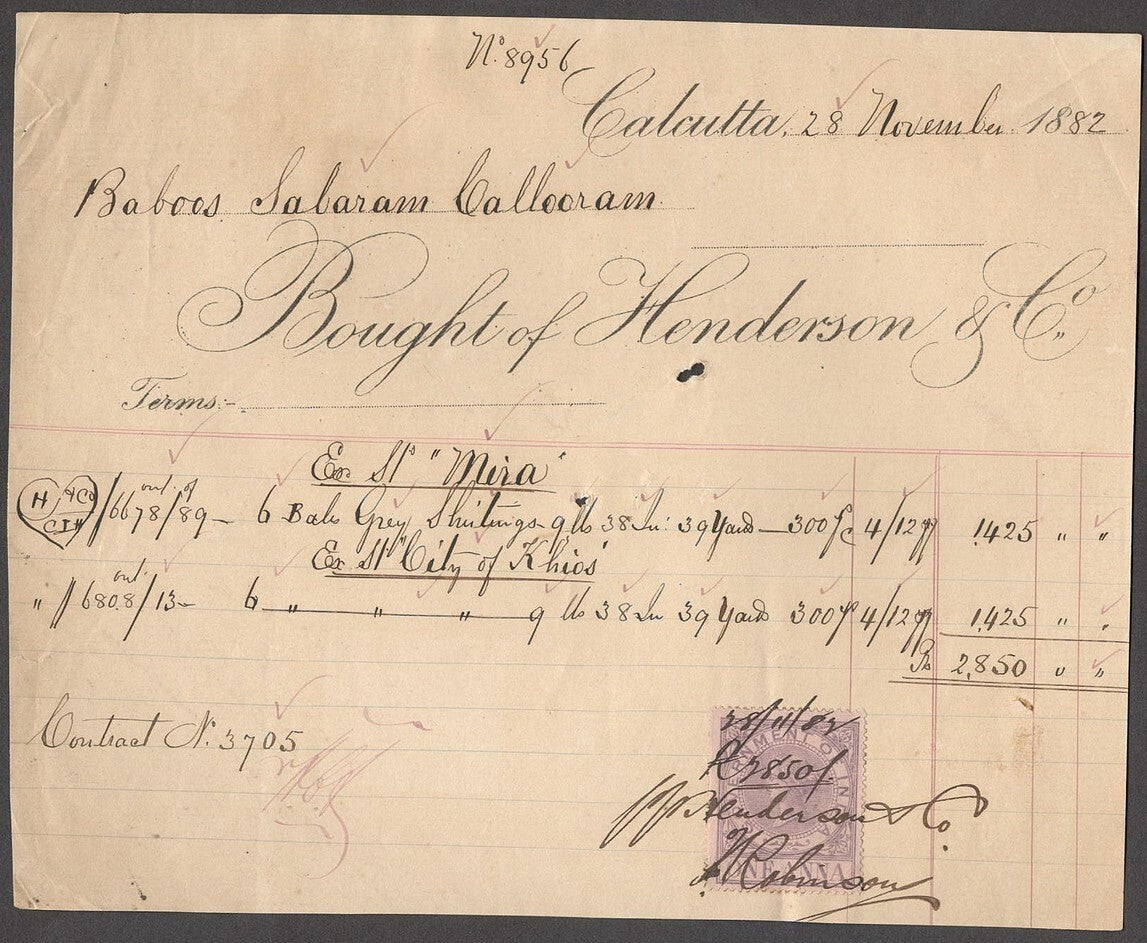 No. 8956
Calcutta, 28 November 1882
Baboos Sabaram Callooram
Bought of Henderson & Co.
Terms:-
Ex Str "Mira"
H & Co CIH // 6678/89 out of - 6 Bales Grey Shirtings 9 lbs 38 In: 39 Yards - 300 pc 4/12 1,425 " "
Ex Str "City of Khios"
" // 6808/13 out - 6 " " " 9 lbs 38 In 39 Yards 300 pc 4/12 1,425 " "
Rs 2,850 " "
Contract No. 3705
28/11/82
GOVERNMENT OF INDIA
R 2850/-
pp Henderson & Co.
ONE ANNA
Robinson